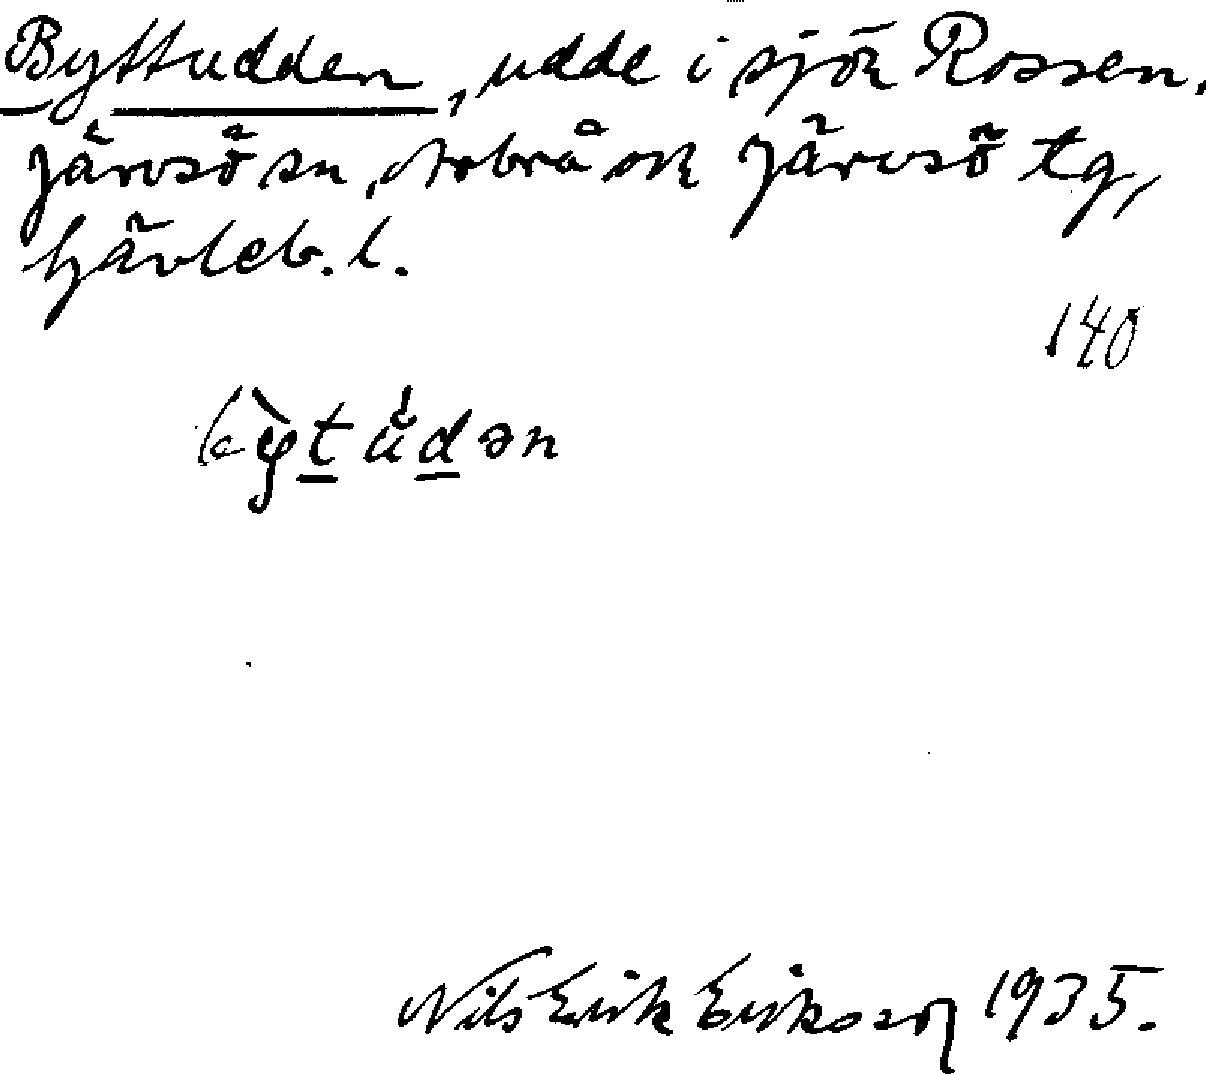 Byttudden, udde i sjön Rossen,
Järvsö sn, Arbrå och Järvsö tg,
Gävleb. l.
140
by̠t̠ ùd̠ən
Nils Erik Eriksson 1935.